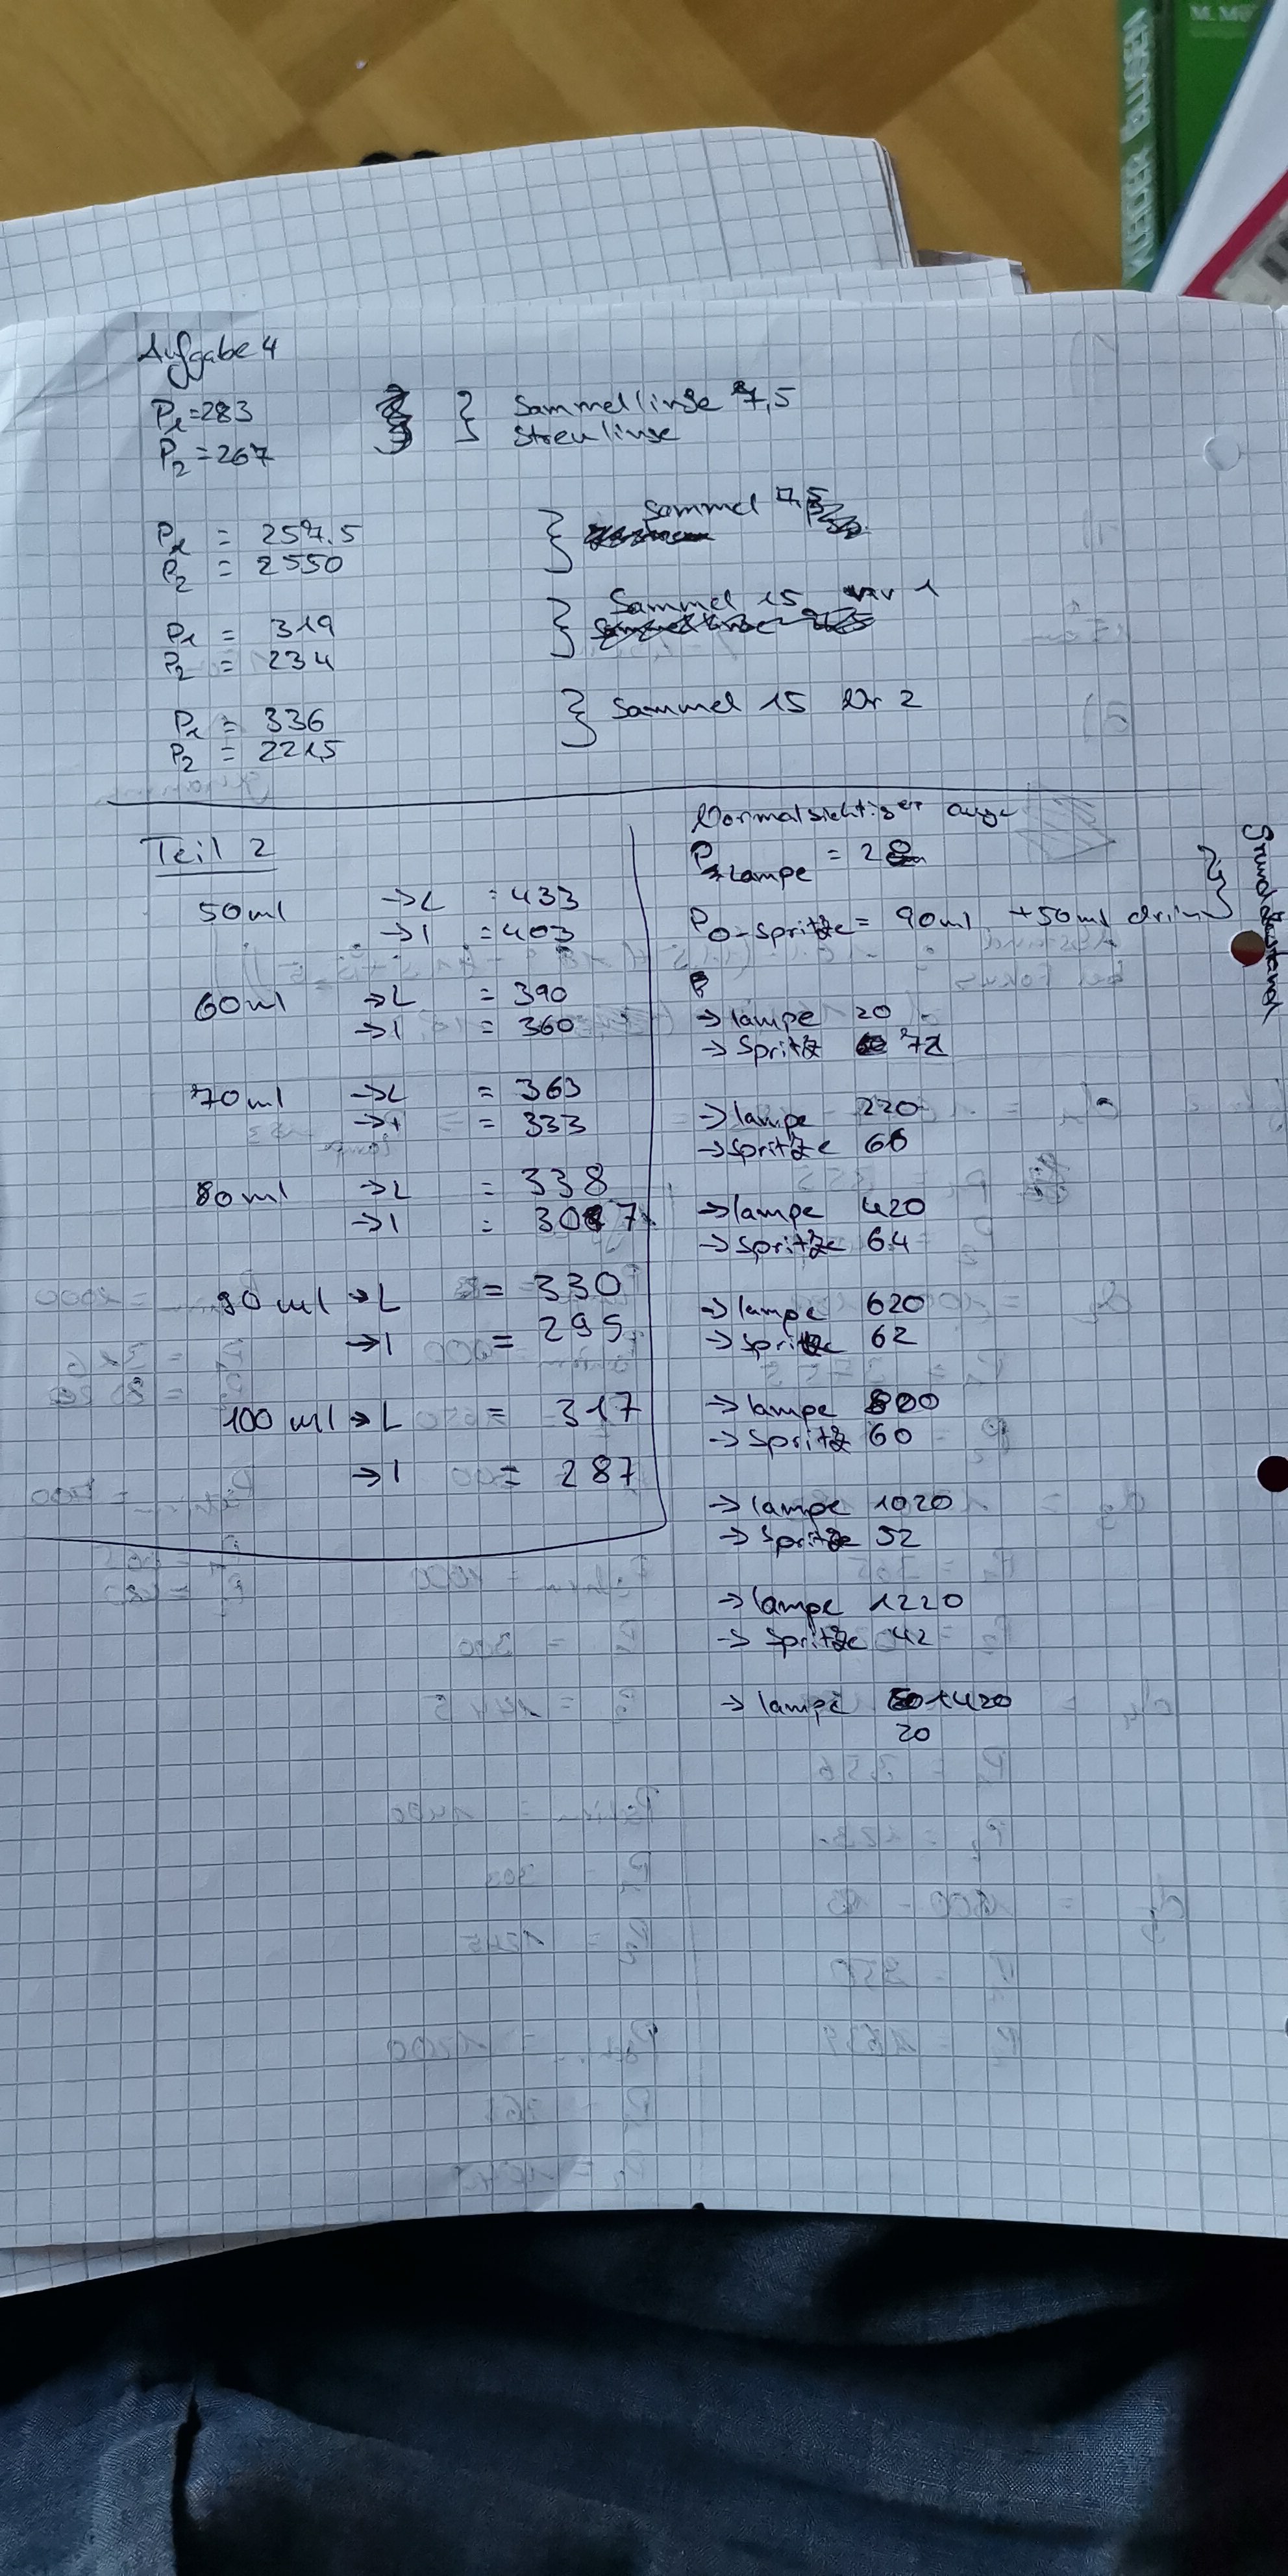 M. MÜ
Aufgabe 4
P1 = 283
P2 = 267
} Sammellinse 7,5
Streulinse
P1 = 257.5
P2 = 2550
} Sammel 7,5
P1 = 319
P2 = 234
} Sammel 15 Nr 1
P1 = 336
P2 = 221,5
} Sammel 15 Nr 2
Teil 2
50ml → L = 433
→ l = 403
60ml → L = 390
→ l = 360
70ml → L = 363
→ l = 333
80ml → L = 338
→ l = 307
90ml → L = 330
→ l = 295
100ml → L = 317
→ l = 287
Normalsichtiger auge
lampe = 2
P0-Spritze = 90ml +50ml drin
Grundzustand
→ lampe 20
→ Spritze 72
→ lampe 220
→ Spritze 66
→ lampe 420
→ Spritze 64
→ lampe 620
→ Spritze 62
→ lampe 800
→ Spritze 60
→ lampe 1020
→ Spritze 52
→ lampe 1220
→ Spritze 42
→ lampe 1420
20